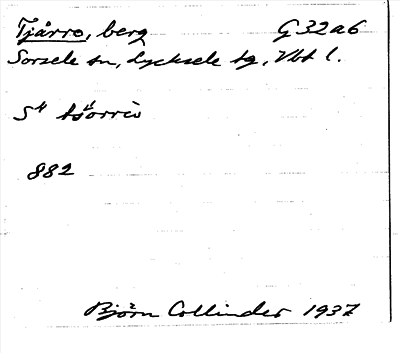 Tjårro, berg G32a6
Sorsele sn, Lycksele tg, Vbt l.
882
Björn Collinder 1937